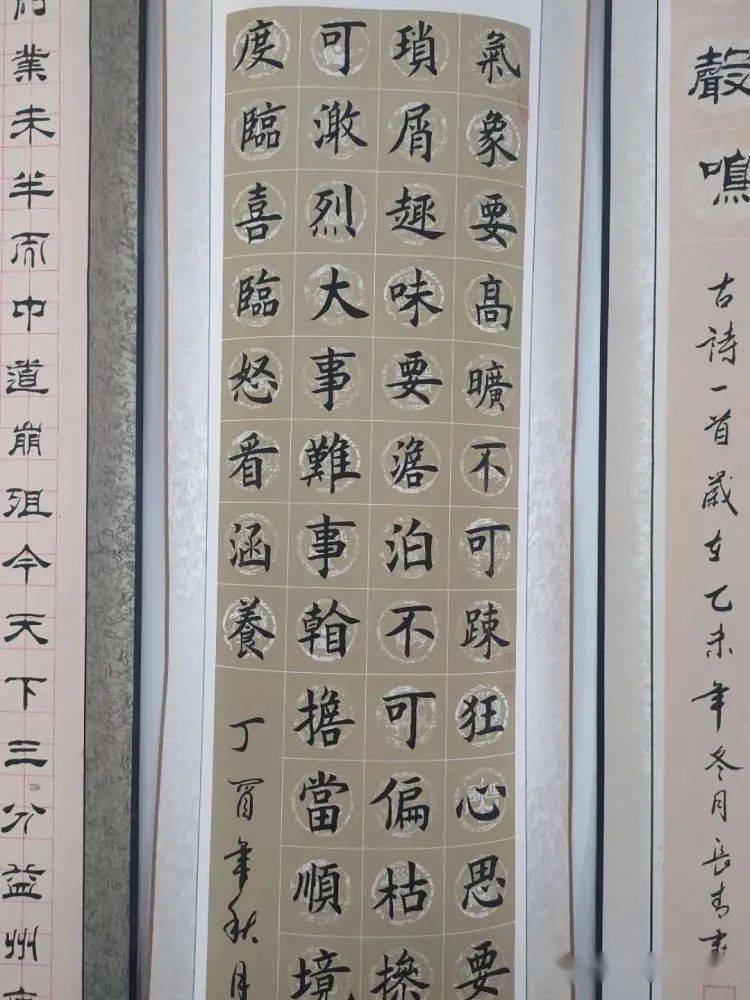 聲
古詩一首歲在乙未年冬月長青書
氣象要高曠不可踈狂心思要
瑣屑趣味要澹泊不可偏枯操
可激烈大事難事擔當順境
度臨喜臨怒看涵養
丁酉年秋月
業未半而中道崩殂今天下三分益州